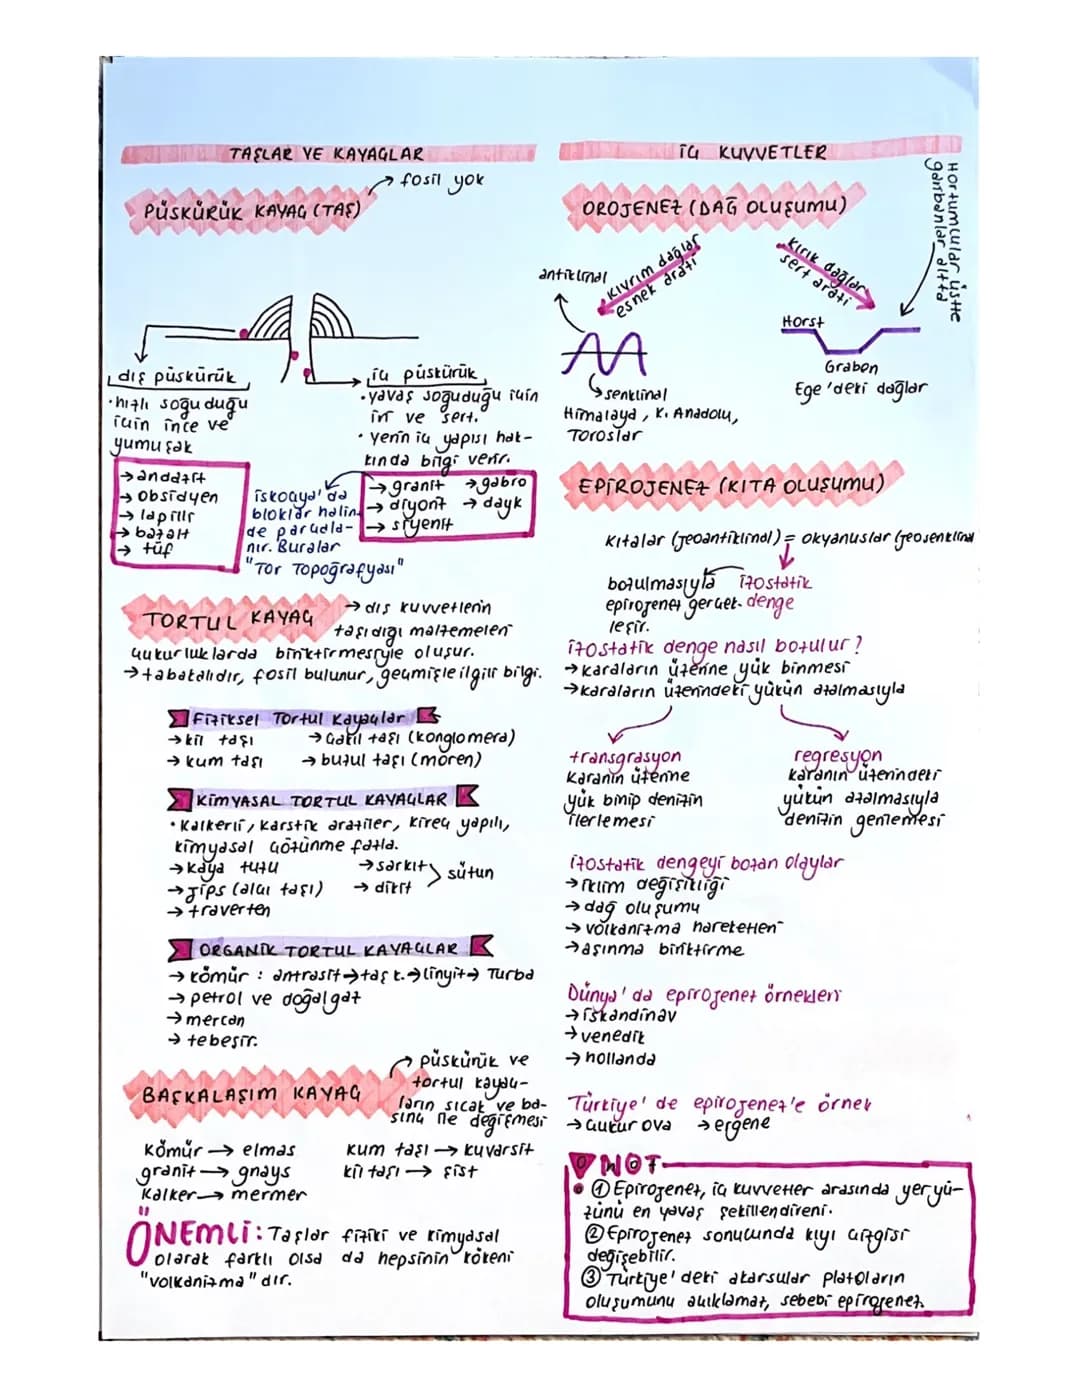 TAŞLAR VE KAYAÇLAR
PÜSKÜRÜK KAYAÇ (TAŞ)
→ fosil yok
dış püskürük
•hızlı soğuduğu
için ince ve
yumuşak
→ andazit
→ obsidyen
→ lapilli
→ bazalt
→ tüf
iç püskürük
•yavaş soğuduğu için
iri ve sert.
• yerin iç yapısı hak-
kında bilgi verir.
→ granit → gabro
→ diyorit → dayk
→ siyenit
İskoçya'da
bloklar halin
de parçala-
nır. Buralar
"Tor Topoğrafyası"
TORTUL KAYAÇ
→ dış kuvvetlerin
taşıdığı malzemeleri
çukurluklarda biriktirmesiyle oluşur.
→ tabakalıdır, fosil bulunur, geçmişle ilgili bilgi.
Fiziksel Tortul Kayaçlar
→ kil taşı → çakıl taşı (konglomera)
→ kum taşı → buzul taşı (moren)
KİMYASAL TORTUL KAYAÇLAR
• Kalkerli, karstik araziler, kireç yapılı,
kimyasal çözünme fazla.
→ kaya tuzu → sarkıt
→ jips (alçı taşı) → dikit
sütun
→ traverten
ORGANİK TORTUL KAYAÇLAR
→ kömür : antrasit → taş k. → linyit → Turba
→ petrol ve doğalgaz
→ mercan
→ tebeşir.
BAŞKALAŞIM KAYAÇ
→ püskürük ve
tortul kayaç-
ların sıcak ve ba-
sınç ile değişmesi
kömür → elmas kum taşı → kuvarsit
granit → gnays kil taşı → şist
Kalker → mermer
ÖNEMLİ: Taşlar fiziki ve kimyasal
olarak farklı olsa da hepsinin kökeni
"volkanizma" dır.
İÇ KUVVETLER
OROJENEZ (DAĞ OLUŞUMU)
Hortumcular üstte
garibanlar altta
Kıvrım dağlar
esnek arazi
Kırık dağlar
sert arazi
antiklinal
senklinal
Himalaya, K. Anadolu,
Toroslar
Horst
Graben
Ege'deki dağlar
EPİROJENEZ (KITA OLUŞUMU)
Kıtalar (jeoantiklinal) = okyanuslar (jeosenklinal
bozulmasıyla izostatik
epirojenez gerçek- denge
leşir.
İzostatik denge nasıl bozulur?
→ karaların üzerine yük binmesi
→ karaların üzerindeki yükün azalmasıyla
transgrasyon
Karanın üzerine
yük binip denizin
ilerlemesi
regresyon
karanın üzerindeki
yükün azalmasıyla
denizin gerilemesi
izostatik dengeyi bozan olaylar
→ iklim değişikliği
→ dağ oluşumu
→ volkanizma hareketleri
→ aşınma biriktirme
Dünya'da epirojenez örnekleri
→ iskandinav
→ venedik
→ hollanda
Türkiye'de epirojenez'e örnek
→ çukur ova → ergene
NOT
① Epirojenez, iç kuvvetler arasında yeryü-
zünü en yavaş şekillendireni.
② Epirojenez sonucunda kıyı çizgisi
değişebilir.
③ Türkiye'deki akarsular platoların
oluşumunu açıklamaz, sebebi epirojenez.